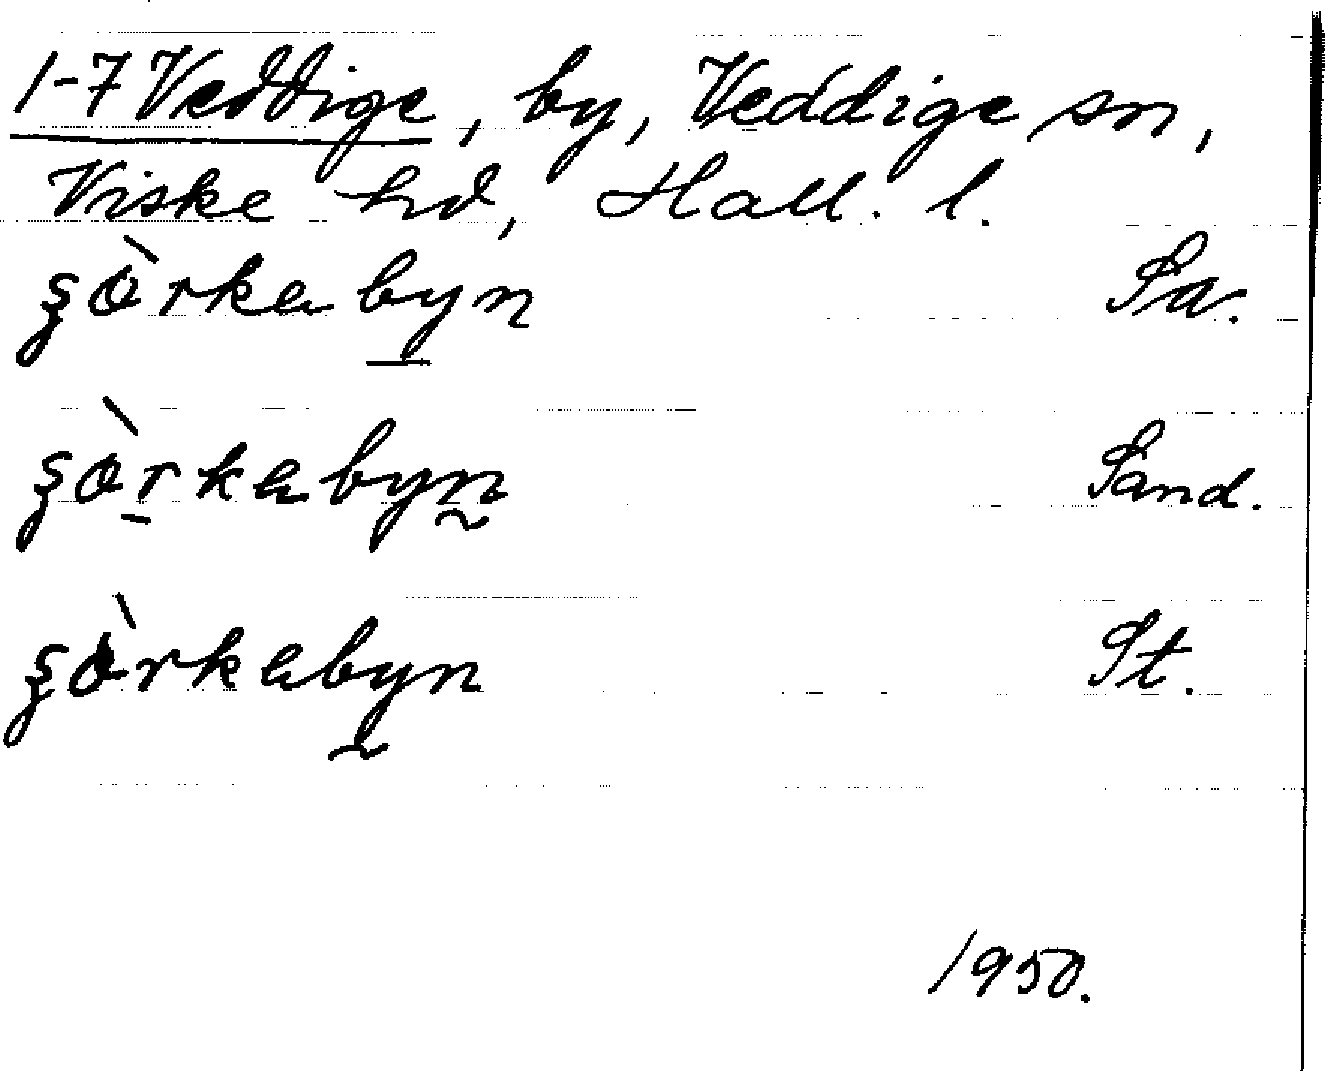 1-7 Veddige, by, Veddige sn,
Viske hd, Hall. l.
ʂòrkabyn Sa.
ʂòrkabyn Sand.
ʂòrkabyn St.
1950.